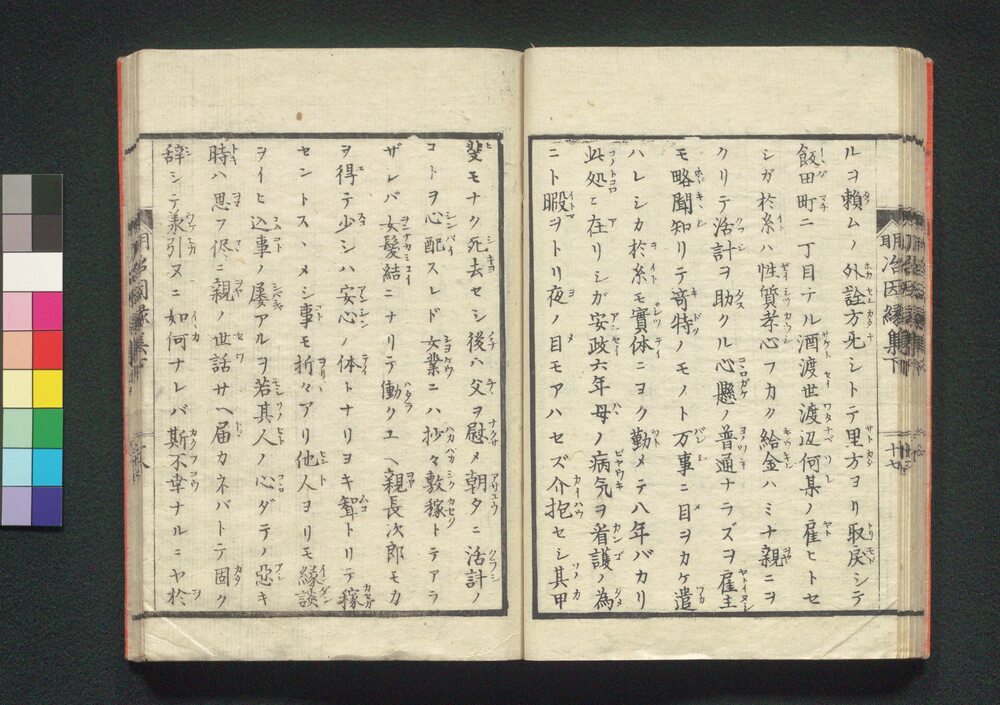 明治因縁集下
十七
ルヲ頼ムノ外詮方无シトテ里方ヨリ取戻シテ
飯田町二丁目ナル酒渡世渡辺何某ノ雇ヒトセ
シガ於糸ハ性質孝心フカク給金ハミナ親ニヲ
クリテ活計ヲ助クル心懸ノ普通ナラズヲ雇主
モ略聞知リテ奇特ノモノト万事ニ目ヲカケ遣
ハレシカ於糸モ實体ニヨク勤メテ八年バカリ
此処ヒ在リシガ安政六年母ノ病気ヲ看護ノ為
ニト暇ヲトリ夜ノ目モアハセズ介抱セシ其甲
斐モナク死去セシ後ハ父ヲ慰メ朝夕ニ活計ノ
コトヲ心配スレド女業ニハ抄々敷稼トテアラ
ザレバ女髪結ニナリテ働クユヘ親長次郎モカ
ヲ得テ少シハ安心ノ体トナリヨキ聟トリテ稼
セントスヽメシ事モ折々アリ他人ヨリモ縁談
ヲイヒ込事ノ屡アルヲ若其人ノ心ダテノ惡キ
時ハ思フ侭ニ親ノ世話サヘ届カネバトテ固ク
辞シテ羕引ヌニ如何ナレバ斯不幸ナルニヤ於